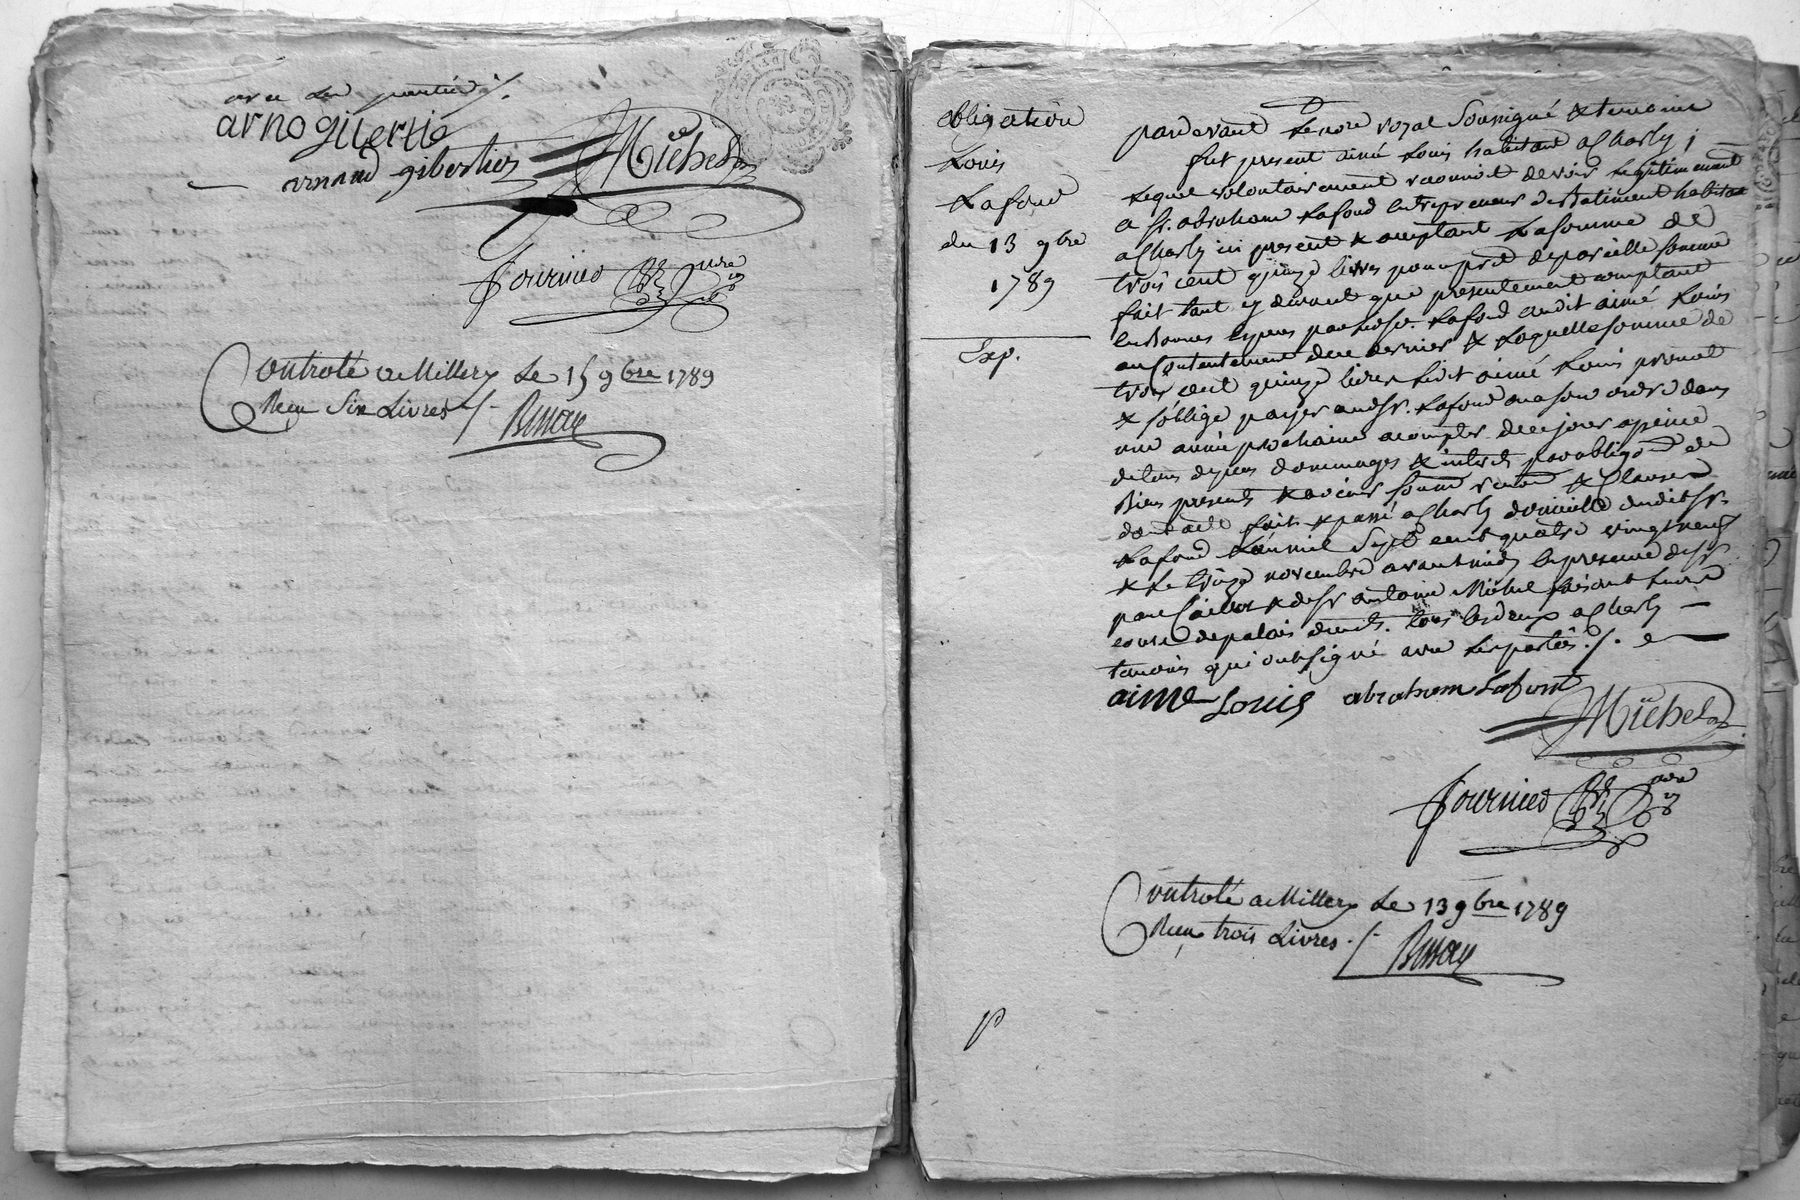 avec les parties ./.
arnogilertie
arnaud gibertier Michel
fournier nore
Controlé a Millery Le 15 9bre 1789
Recu Six Livres ./.
obligation
Louis
Lafond
du 13 9bre
1789
Exp.
pardevant Le nore royal Soussigné & temoins
fut present aimé Louis habitant a Charly ;
Lequel volontairement reconnoit devoir Legitimement
a Sr. abraham Lafond entrepreneur de Batiment habitant
a Charly ici present & acceptant La somme de
trois cent quinze livres pour pret de pareille somme
fait tant cy devant que presentement comptant
en bonnes especes par led. Sr. Lafond audit aimé Louis
au Contentement de ce dernier & Laquelle somme de
trois cent quinze livres Ledit aimé Louis promet
& s'oblige payer audt Sr. Lafond ou a son ordre dans
une année prochaine a compter de ce jour a peine
de tous depens dommages & interets par obligon de
Biens presents & avenir soumn renon & Clauses
dont acte fait & passé a Charly domicille dudit Sr.
Lafond L'an mil Sept cent quatre vingt neuf
& Le treize novembre avant midy en presence de Sr
& de Sr antoine Michel
tous les deux a Charly
temoins qui ont signé avec Les parties ./.
aimé Louis abraham Lafont
Michel
fournier nore
Controlé a Millery Le 13 9bre 1789
Recu trois Livres ./.